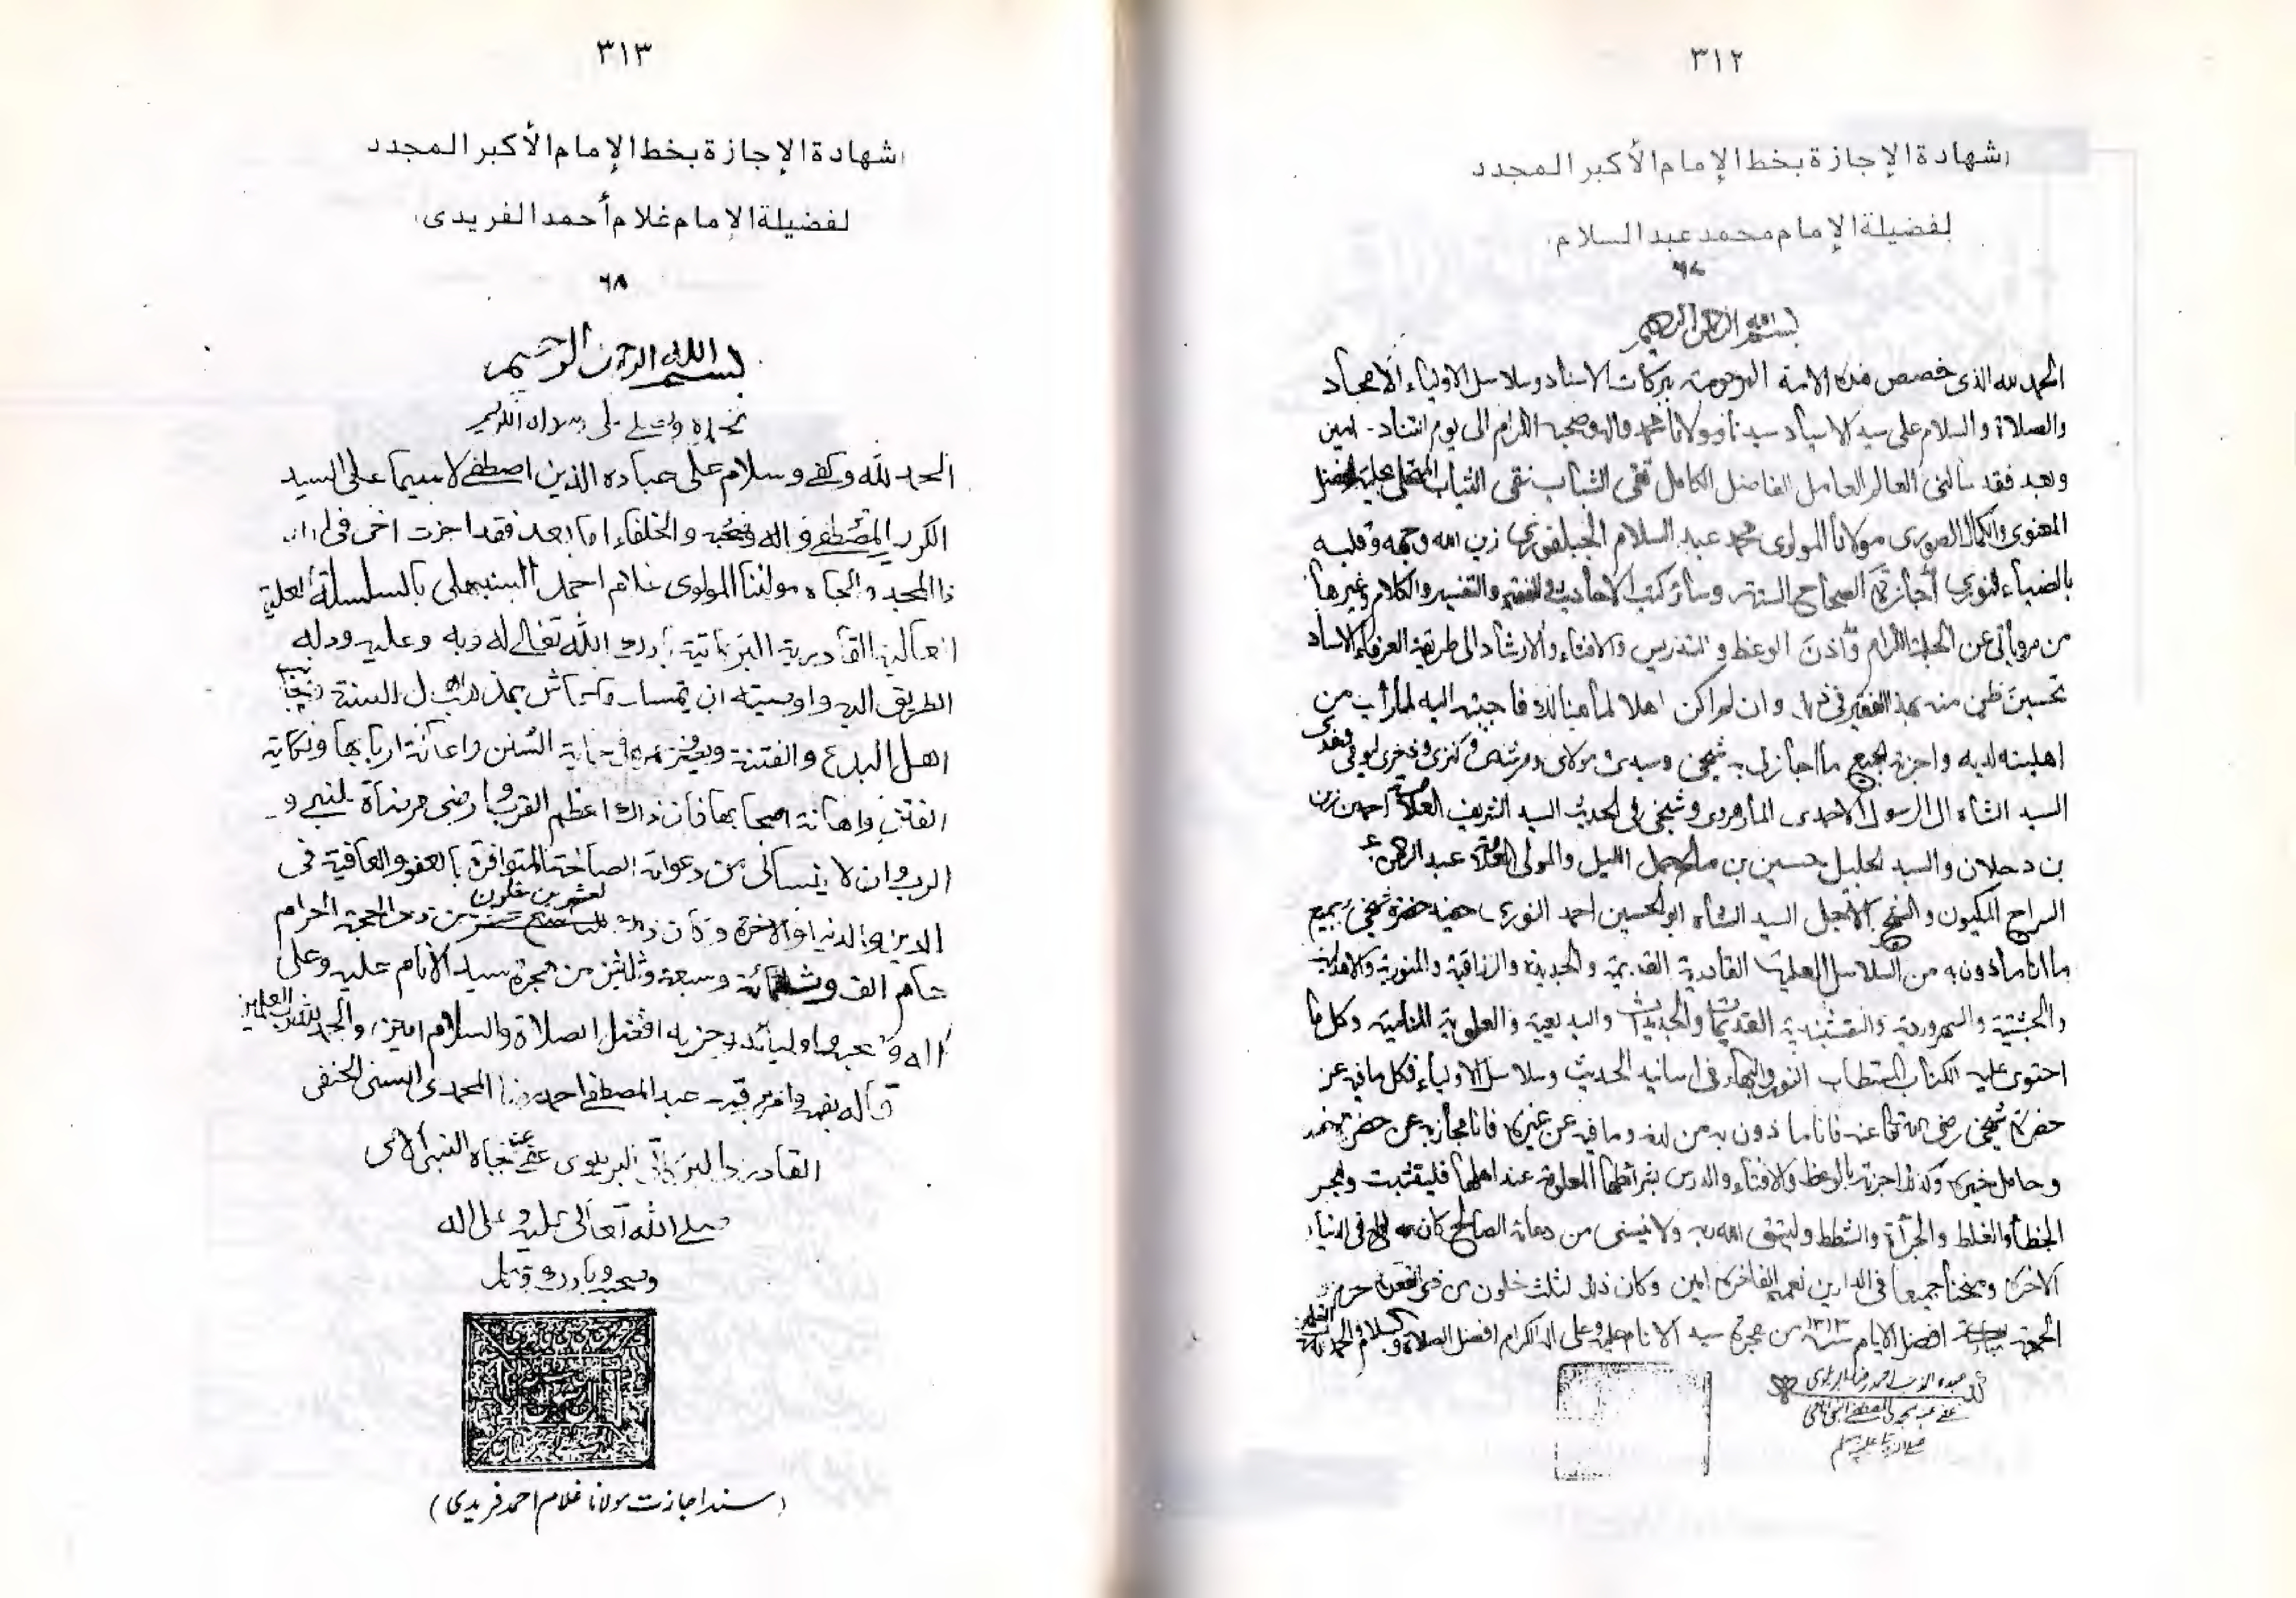 ٣١٢
شهادة الإجازة بخط الإمام الأكبر المجدد
لفضيلة الإمام محمد عبد السلام
بسم الله الرحمن الرحيم
الحمد لله الذي خصص هذه الامة المرحومة ببركات الاسناد وسلاسل الاولياء الامجاد
والصلاة والسلام على سيد الاسياد سيدنا ومولانا محمد واله وصحبه الكرام الى يوم التناد۔ امين
وبعد فقد سألنى العالم العامل الفاضل الكامل تقى الشباب نقى الثياب
المعنوى والكمال الصورى مولانا المولوى محمد عبد السلام الجبلفورى زين الله وجهه وقلبه
بالضياء النورى اجازة الصحاح الستة وسائر كتب الاحاديث والفقه والتفسير والكلام وغيرها
من مروياتى عن الجلة الكرام واذن الوعظ والتدريس والافتاء والارشاد الى طريقة العرفاء الاسياد
تحسين ظن منه بهذا الفقير وان لم اكن اهلا لما هنالك فاجبته اليه لما رأيت من
اهليته لديه واجزته بجميع ما اجازنى به شيخى وسيدى ومولاى ومرشدى وكنزى وذخرى ليومى وغدى
السيد الشاه ال الرسول الاحمدى المارهروى وشيخى فى الحديث السيد الشريف العلامة احمد بن زين
بن دحلان والسيد الجليل حسين بن صالح جمل الليل والمولى العلامة عبد الرحمن
السراج المكيون والشيخ الاجل السيد الشاه ابو الحسين احمد النورى حفيد حضرة شيخى بجميع
ما انا ماذون به من السلاسل العلية القادرية القديمة والجديدة والرزاقية والمنورية والاهدلية
والچشتية والسهروردية والنقشبندية القديمات والجديدات والبديعية والعلوية المنامية وكل ما
احتوى عليه الكتاب المستطاب النور والبهاء فى اسانيد الحديث وسلاسل الاولياء فكل ما فيه عن
حضرة شيخى رضى الله تعالى عنه فانا ماذون به من لدنه وما فيه عن غيره فانا مجاز به عن حضرة
وكذلك اجزته بالوعظ والافتاء والدرس بشرائطها المعلومة عند اهلها فليتثبت
الخطأ والغلط والجرأة والشطط وليتق الله ربه ولا ينسنى من دعائه الصالح كان الله لى وله فى الدنيا و
الاخرة ومنحنا جميعا فى الدارين نعمه الفاخرة امين وكان ذلك لثلث خلون من ذى القعدة
الجمعة افضل الايام سنة ١٣١٣ من هجرة سيد الانام عليه وعلى اله الكرام افضل الصلاة والسلام
٣١٣
شهادة الإجازة بخط الإمام الأكبر المجدد
لفضيلة الإمام غلام أحمد الفريدى
٦٨
بسم الله الرحمن الرحيم
نحمده ونصلى على رسوله الكريم
الحمد لله وكفى وسلام على عباده الذين اصطفى لاسيما على السيد
الكريم المصطفى واله وصحبه والخلفاء اما بعد فقد اجزت اخى فى الله
ذا المجد والجاه مولٰنا المولوى غلام احمد السنبهلى بالسلسلة العلية
العالية القادرية البركاتية بارك الله تعالى له وبه وعليه ودله
الطريق اليه واوصيته ان يتمسك بمذهب اهل السنة ويجانب
اهل البدع والفتنة ويصرف عمره فى حماية السنن واعانة اربابها ونكاية
الفتن واهانة اصحابها فان ذلك اعظم القرب وارضى مرضاة للنبى و
الرب وان لا ينسانى من دعواته الصالحة المتوافرة بالعفو والعافية فى
الدين والدنيا والاخرة وكان ذلك لعشر بن خلون من ذى الحجة الحرام
عام الف وثلثمائة وسبعة وثلثين من هجرة سيد الانام عليه وعلى
اله وصحبه واوليائه وحزبه افضل الصلاة والسلام امين والحمد لله رب العلمين
قاله بفمه وامر برقمه عبد المصطفى احمد رضا المحمدى السنى الحنفى
القادرى البركاتى البريلوى عفى عنه بجاه النبى الامى
صلى الله تعالى عليه وعلى اله
وصحبه وبارك وسلم
(سند اجازت مولانا غلام احمد فریدی)